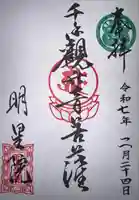 奉拝
令和七年 十一月二十四日
千手観世音菩薩
明星院